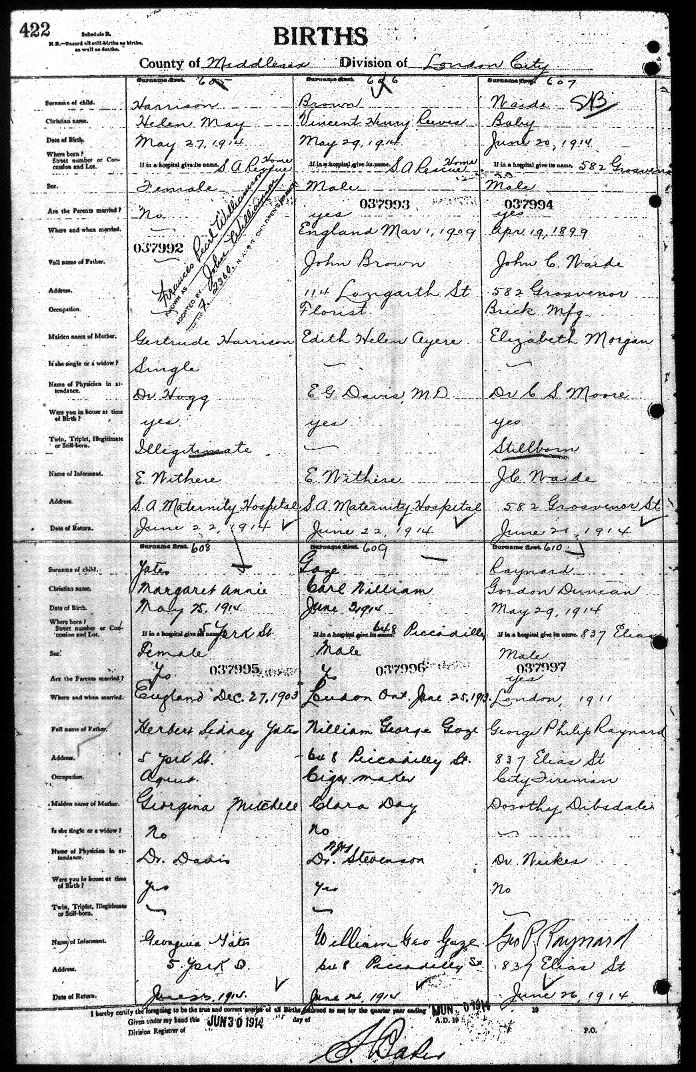 422
Schedule B.
N.B.—Record all still-births as births, as well as deaths.
BIRTHS
County of Middlesex Division of London City
Surname first. 605 Surname first. 606 Surname first. 607
Surname of child. Harrison Brown Waide SB
Christian name. Helen May Vincent Henry Reeves Baby
Date of Birth. May 27, 1914 May 29, 1914 June 20, 1914
Where born? Street number or Concession and Lot. If in a hospital give its name. S A Rescue Home If in a hospital give its name. S A Rescue Home If in a hospital give its name. 582 Grosvenor
Sex. Female Male Male
037993 037994
Are the Parents married? No yes yes
Where and when married. England Mar 1, 1909 Apr 19, 1899
037992
Frances Pearl Williamson
John Williamson
Full name of Father. John Brown John C. Waide
Address. 114 Langarth St 582 Grosvenor
Occupation. Florist Brick Mfg.
Maiden name of Mother. Gertrude Harrison Edith Helen Ayere Elizabeth Morgan
Is she single or a widow? Single
Name of Physician in attendance. Dr. Hogg E G Davis M.D. Dr C S Moore
Were you in house at time of Birth? yes yes yes
Twin, Triplet, Illegitimate or Still-born. Illegitimate — Stillborn
Name of Informant. E. Withere E. Withire J.C. Waide
Address. S.A. Maternity Hospital S.A. Maternity Hospital 582 Grosvenor St
Date of Return. June 22, 1914 June 22, 1914 June 1914
Surname first. 608 Surname first. 609 Surname first. 610
Surname of child. Yates Gaze Raynard
Christian name. Margaret Annie Carl William Gordon Duncan
Date of Birth. May 1914 June 2, 1914 May 29, 1914
Where born? Street number or Concession and Lot. If in a hospital give its name. 5 York St If in a hospital give its name. 648 Piccadilly If in a hospital give its name. 837 Elias
Sex. Female Male Male
037995 037996 037997
Are the Parents married? Yes Yes yes
Where and when married. England Dec. 27, 1903 London Ont June 25, London, 1911
Full name of Father. Herbert Sidney Yates William George Gaze George Philip Raynard
Address. 5 York St. 648 Piccadilly St. 837 Elias St
Occupation. Agent. Cigar maker City Fireman
Maiden name of Mother. Georgina Mitchell Clara Day Dorothy Dibsdale
Is she single or a widow? No No
Name of Physician in attendance. Dr. Davis Dr. Stevenson Dr. Weekes
Were you in house at time of Birth? Yes Yes No
Twin, Triplet, Illegitimate or Still-born.
Name of Informant. Georgina Yates William Geo Gaze Geo P. Raynard
Address. 5 York S. 648 Piccadilly St 837 Elias St
Date of Return. June 23, 1914. June 24, 1914 June 26, 1914
I hereby certify the foregoing to be the true and correct entries of all Births returned to me for the quarter year ending 1914 19
Given under my hand this JUN 30 1914 day of A.D. 19
Division Registrar of P.O.